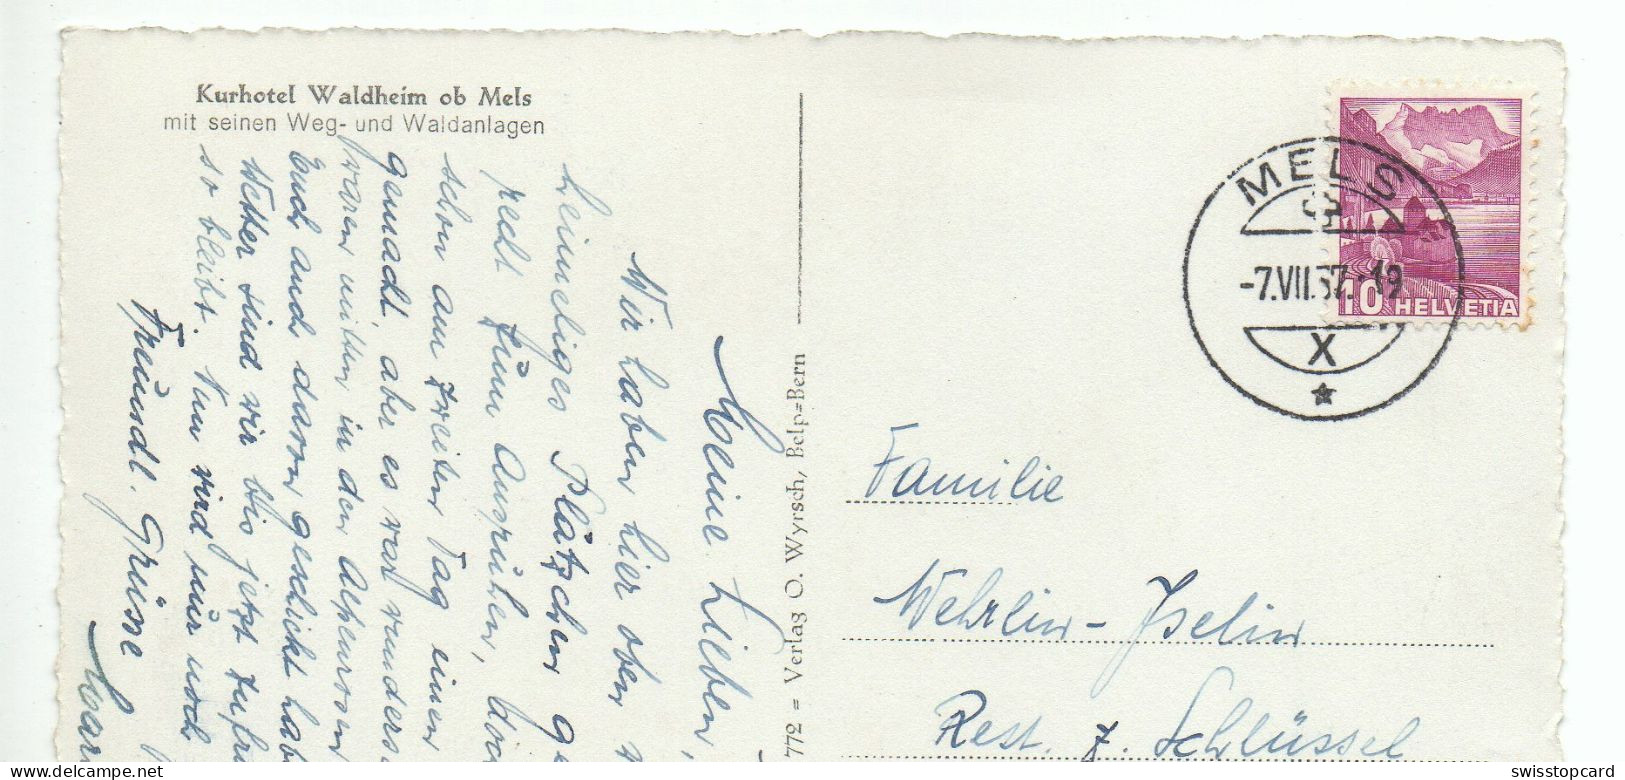 Kurhotel Waldheim ob Mels
mit seinen Weg- und Waldanlagen
Meine Lieben,
Wir haben hier oben
heimeliges Plätzchen
recht zum Ausruhen,
schon am zweiten Tag einen
gemacht, aber es war
waren mitten in den Alpenrosen
Euch auch davon geschickt
Wetter sind wir bis jetzt
so bleibt. Nun wird nur noch
Freundl. Grüsse
772 = Verlag O. Wyrsch, Belp=Bern
MELS
-7.VII.57.-19
X
10 HELVETIA
Familie
Wehrlin-Iselin
Rest. z. Schlüssel
swisstopcard